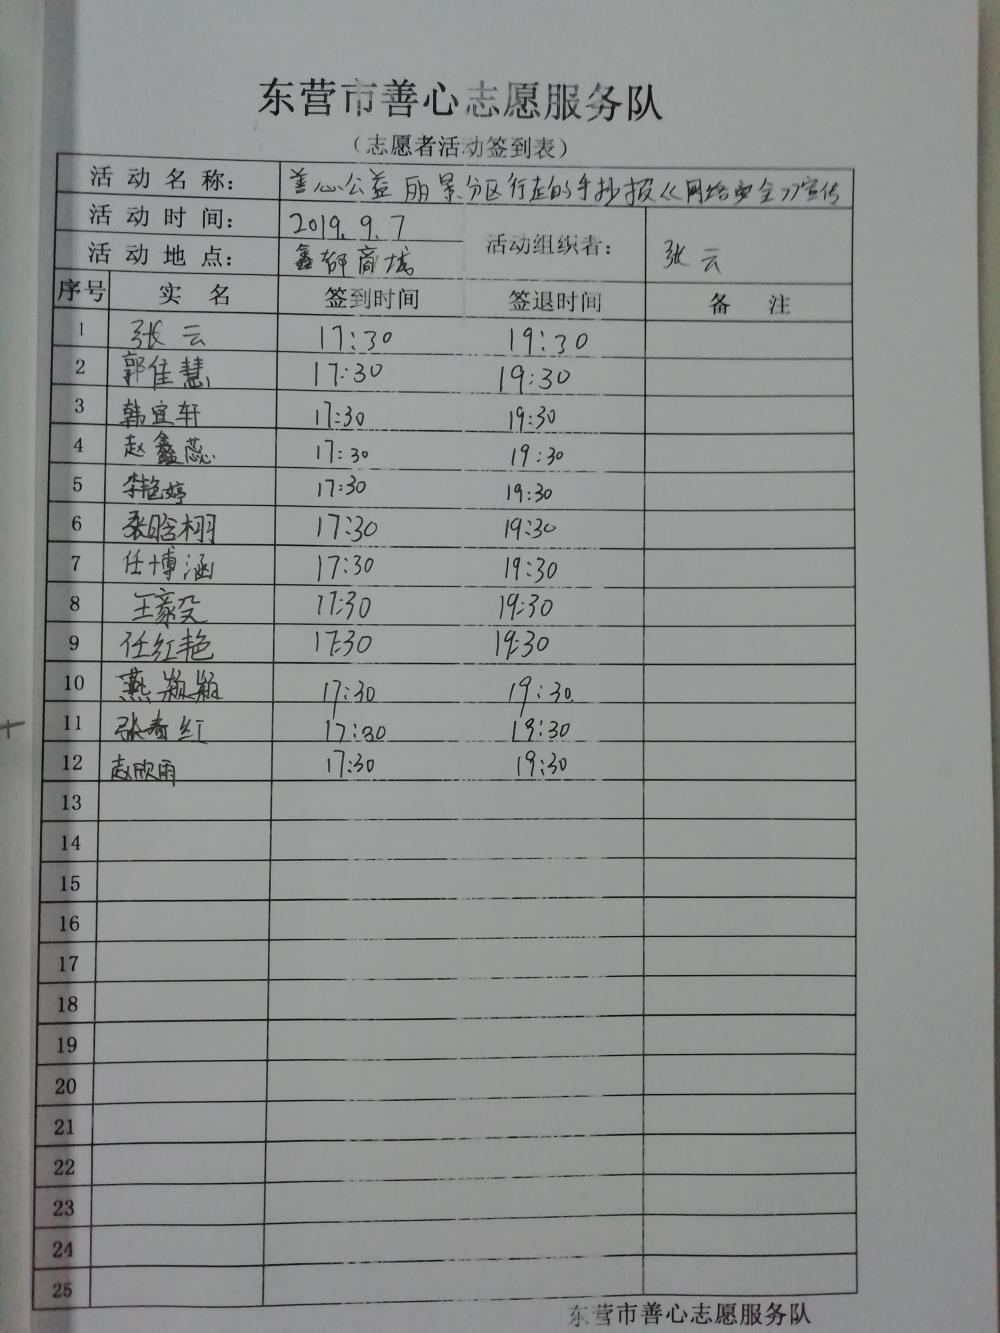 东营市善心志愿服务队
（志愿者活动签到表）
活动名称： 善心公益丽景分区行走的手抄报《网络安全》宣传
活动时间： 2019.9.7 活动组织者： 张云
活动地点： 鑫都商城
序号 实名 签到时间 签退时间 备注
1 张云 17:30 19:30
2 郭佳慧 17:30 19:30
3 韩宜轩 17:30 19:30
4 赵鑫蕊 17:30 19:30
5 李艳婷 17:30 19:30
6 张晗栩 17:30 19:30
7 任博涵 17:30 19:30
8 王豪 17:30 19:30
9 任红艳 17:30 19:30
10 燕颖颖 17:30 19:30
11 张春红 17:30 19:30
12 赵欣雨 17:30 19:30
13
14
15
16
17
18
19
20
21
22
23
24
25
东营市善心志愿服务队